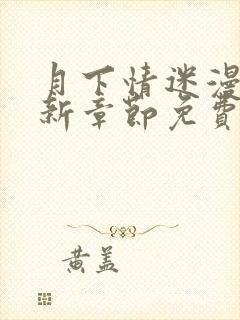 月下情迷漫
新章節免費
黃蓋